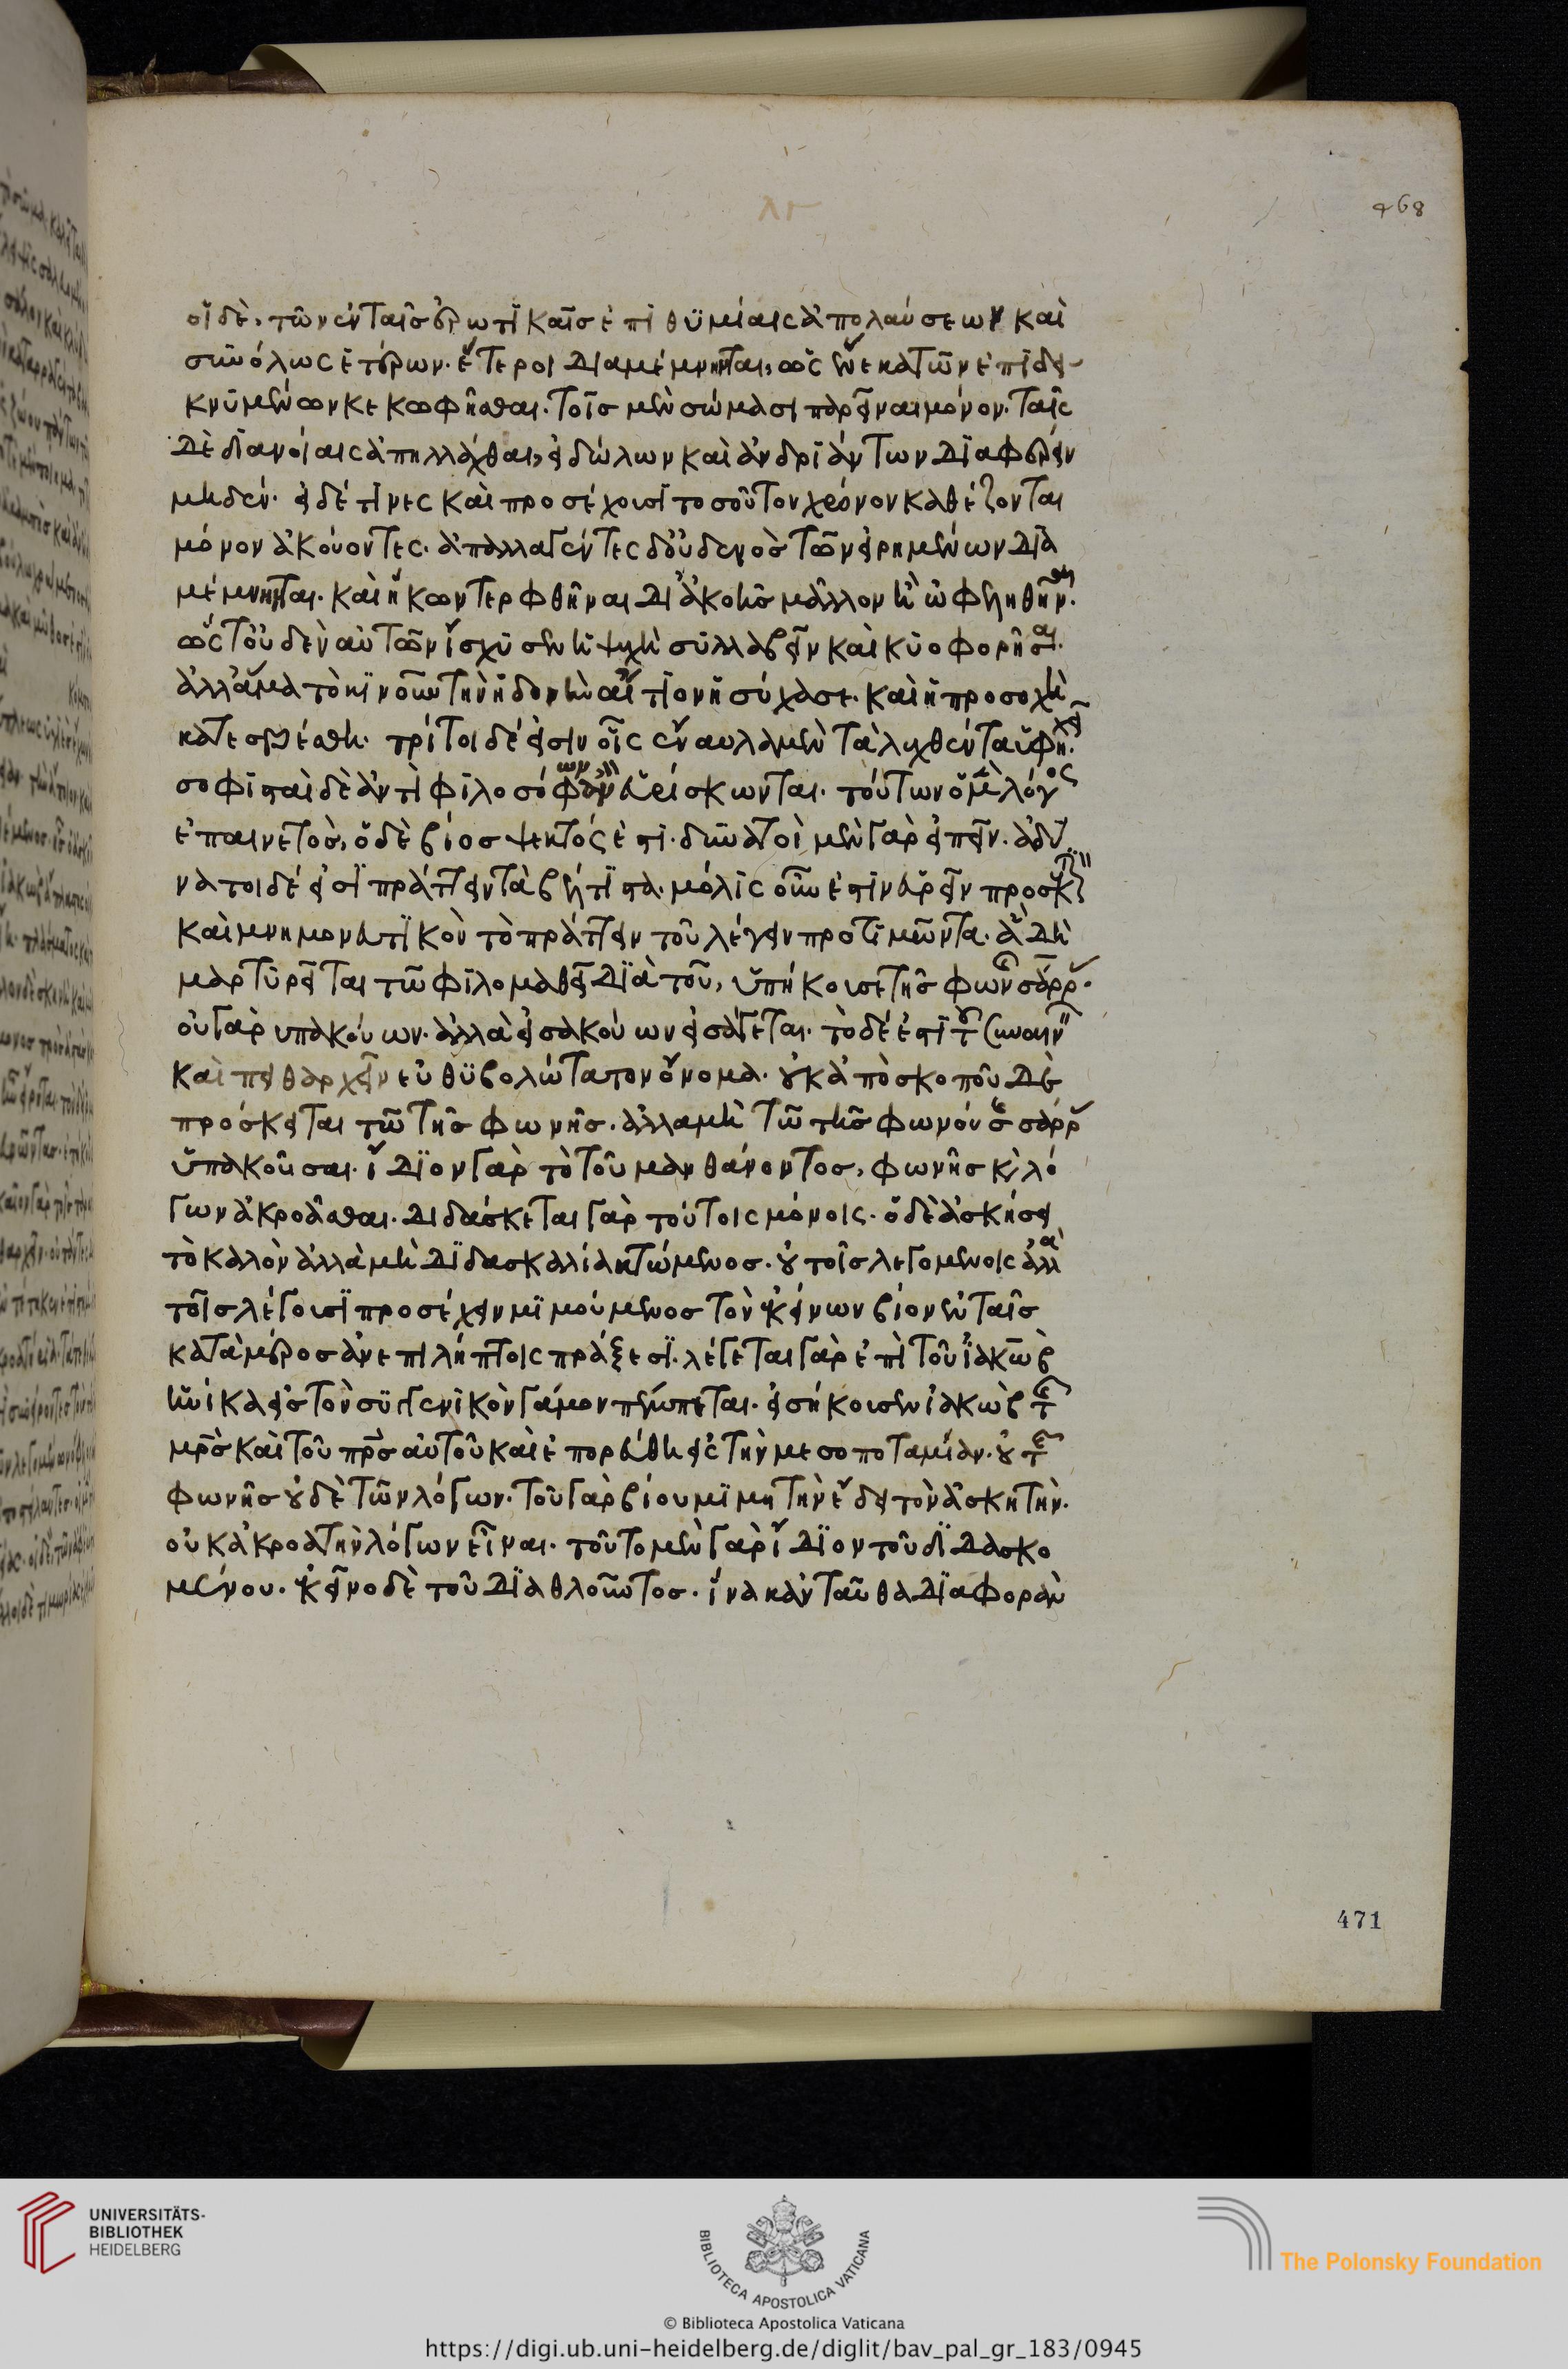 οἱ δὲ, τῶν ἐν ταῖς ἐρωτικαῖς ἐπιθυμίαις ἀπολαύσεων καὶ
συνόλως ἑτέρων. ἕτεροι διαμέμνηνται, ὡς ἕνεκα τῶν ἐπιδει-
κνυμένων κεκωφῆσθαι. τοῖς μὲν σώμασι παρεῖναι μόνον. ταῖς
δὲ διανοίαις ἀπηλλάχθαι, εἰδώλων καὶ ἀνδριάντων διαφέρειν
μηδέν. εἰ δέ τινες καὶ προσέχουσι τοσοῦτον χρόνον καθέζονται
μόνον ἀκούοντες. ἀπαλλαγέντες δ' οὐδενὸς τῶν εἰρημένων δια
μέμνηνται. καὶ ἥκων τερφθῆναι δι' ἀκοῆς μᾶλλον ἢ ὠφεληθῆναι.
ὥςτ' οὐδὲν αὐτῶν ἴσχυσεν ἡ ψυχὴ συλλαβεῖν καὶ κυοφορῆσαι.
ἀλλ' ἅμα τὸ κινοῦν τὴν ἡδονὴν αἴτιον ἡσύχασε. καὶ ἡ προσοχὴ
κατεσβέσθη. τρίτοι δέ εἰσιν οἷς ἔναυλα μὲν τὰ λεχθέντα ὑφηχεῖ.
σοφισταὶ δὲ ἀντὶ φιλοσόφων ἀνευρίσκωνται. τούτων ὁ μὲν λόγος
ἐπαινετὸς, ὁ δὲ βίος ψεκτός ἐστι. δυνατοὶ μὲν γὰρ εἰπεῖν. ἀδύ
νατοι δέ εἰσι πράττειν τὰ βέλτιστα. μόλις οὖν ἐστὶν εὑρεῖν προσεκτικὸν
καὶ μνημονευτικὸν τὸ πράττειν τοῦ λέγειν προτιμῶντα. ἃ δὴ
μαρτυρεῖται τῶ φιλομαθεῖ διὰ τοῦ, ὑπήκουσε τῆς φωνῆς σάρρας.
οὐ γὰρ ὑπακούων. ἀλλὰ εἰσακούων εἰσάγεται. τὸ δέ ἐστι τοῦ συναινεῖν
καὶ πειθαρχεῖν εὐθυβολώτατον ὄνομα. οὐκ ἀπὸ σκοποῦ δὲ
πρόσκειται τῶ τῆς φωνῆς. ἀλλὰ μὴ τῶ τῆς φωνούσης σάρρας
ὑπακοῦσαι. ἴδιον γὰρ τὸ τοῦ μανθάνοντος, φωνῆς καὶ λό
γων ἀκροᾶσθαι. διδάσκεται γὰρ τούτοις μόνοις. ὁ δὲ ἀσκήσει
τὸ καλὸν ἀλλὰ μὴ διδασκαλία κτώμενος. οὐ τοῖς λεγομένοις ἀλλὰ
τοῖς λέγουσι προσέχειν μιμούμενος τὸν ἐκείνων βίον ἐν ταῖς
κατὰ μέρος ἀνεπιλήπτοις πράξεσι. λέγεται γὰρ ἐπὶ τοῦ ἰακὼβ
ἡνίκα εἰς τὸν συγγενικὸν γάμον πέμπεται. εἰσήκουσεν ἰακὼβ τῆς
μρ̅ς καὶ τοῦ πρ̅ς αὐτοῦ καὶ ἐπορεύθη εἰς τὴν μεσοποταμίαν. οὐ τῆς
φωνῆς οὐδὲ τῶν λόγων. τοῦ γὰρ βίου μιμητὴν ἔδει τὸν ἀσκητὴν.
οὐκ ἀκροατὴν λόγων εἶναι. τοῦτο μὲν γὰρ ἴδιον τοῦ διδασκο
μένου. ἐκεῖνο δὲ τοῦ διαθλοῦντος. ἵνα κἀνταῦθα διαφορὰν
468
471
UNIVERSITÄTS-
BIBLIOTHEK
HEIDELBERG
BIBLIOTECA APOSTOLICA VATICANA
The Polonsky Foundation
© Biblioteca Apostolica Vaticana
https://digi.ub.uni-heidelberg.de/diglit/bav_pal_gr_183/0945